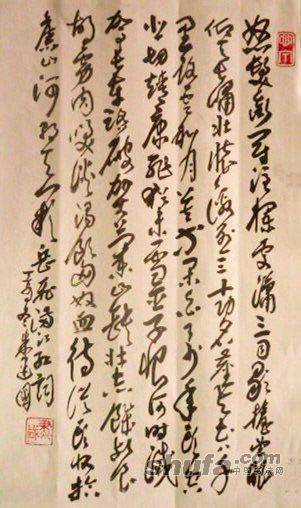 怒髮衝冠憑欄處瀟瀟雨歇擡望眼
仰天長嘯壯懷激烈三十功名塵與土八千
里路雲和月莫等閒白了少年頭空
悲切靖康恥猶未雪臣子恨何時滅
駕長車踏破賀蘭山缺壯志飢餐
胡虜肉笑談渴飲匈奴血待從頭收拾
舊山河朝天闕 岳飛滿江紅詞
shufa.com